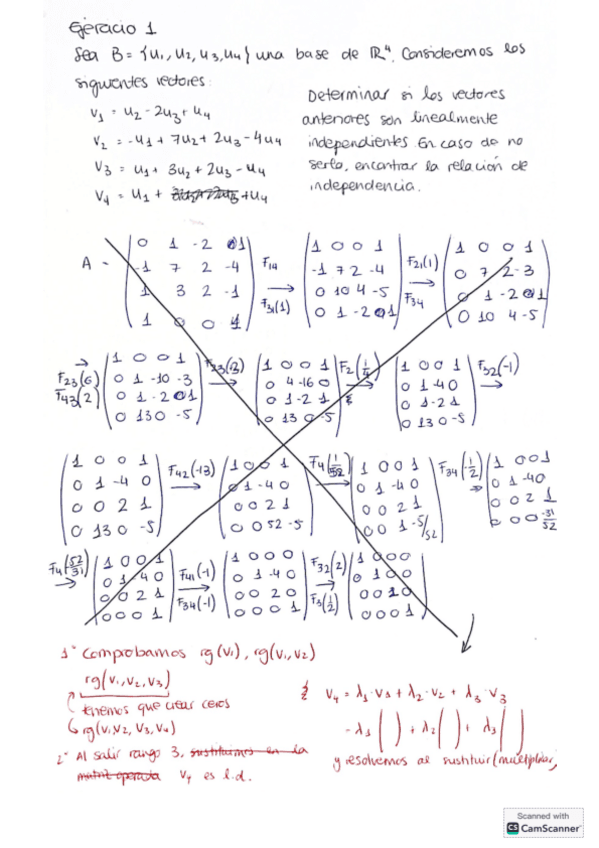 Ejercicio 1
Sea B = {u1, u2, u3, u4} una base de ℝ⁴. Consideremos los
siguientes vectores:
v1 = u2 - 2u3 + u4
v2 = -u1 + 7u2 + 2u3 - 4u4
v3 = u1 + 3u2 + 2u3 - u4
v4 = u1 + u4
Determinar si los vectores
anteriores son linealmente
independientes. En caso de no
serlo, encontrar la relación de
independencia.
A =
0 1 -2 1
-1 7 2 -4
1 3 2 -1
1 0 0 1
F14
F31(1)
1 0 0 1
-1 7 2 -4
0 10 4 -5
0 1 -2 1
F21(1)
F34
1 0 0 1
0 7 2 -3
0 1 -2 1
0 10 4 -5
F23(6)
F43(2)
1 0 0 1
0 1 -10 -3
0 1 -2 1
0 13 0 -5
F23(3)
1 0 0 1
0 4 -16 0
0 1 -2 1
0 13 0 -5
F2(1/4)
1 0 0 1
0 1 -4 0
0 1 -2 1
0 13 0 -5
F32(-1)
1 0 0 1
0 1 -4 0
0 0 2 1
0 13 0 -5
F42(-13)
1 0 0 1
0 1 -4 0
0 0 2 1
0 0 52 -5
F4(1/52)
1 0 0 1
0 1 -4 0
0 0 2 1
0 0 1 -5/52
F34(-1/2)
1 0 0 1
0 1 -4 0
0 0 2 1
0 0 0 -31/52
F4(52/31)
1 0 0 1
0 1 -4 0
0 0 2 1
0 0 0 1
F41(-1)
F34(-1)
1 0 0 0
0 1 -4 0
0 0 2 0
0 0 0 1
F32(2)
F3(1/2)
1 0 0 0
0 1 0 0
0 0 1 0
0 0 0 1
1º Comprobamos rg(v1), rg(v1, v2)
rg(v1, v2, v3)
tenemos que crear ceros
rg(v1, v2, v3, v4)
2º Al salir rango 3, sustituimos en la
matriz v4 es l.d.
v4 = λ1·v1 + λ2·v2 + λ3·v3
= λ1( ) + λ2( ) + λ3( )
y resolvemos al sustituir/multiplicar,
Scanned with
CS CamScanner